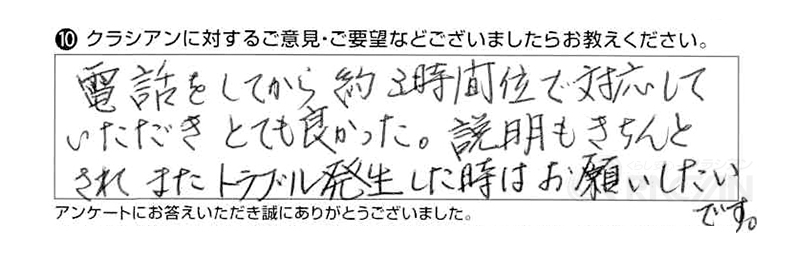 ⑩ クラシアンに対するご意見・ご要望などございましたらお教えください。
電話をしてから約2時間位で対応して
いただきとても良かった。説明もきちんと
されまたトラブル発生した時はお願いしたい
です。
アンケートにお答えいただき誠にありがとうございました。